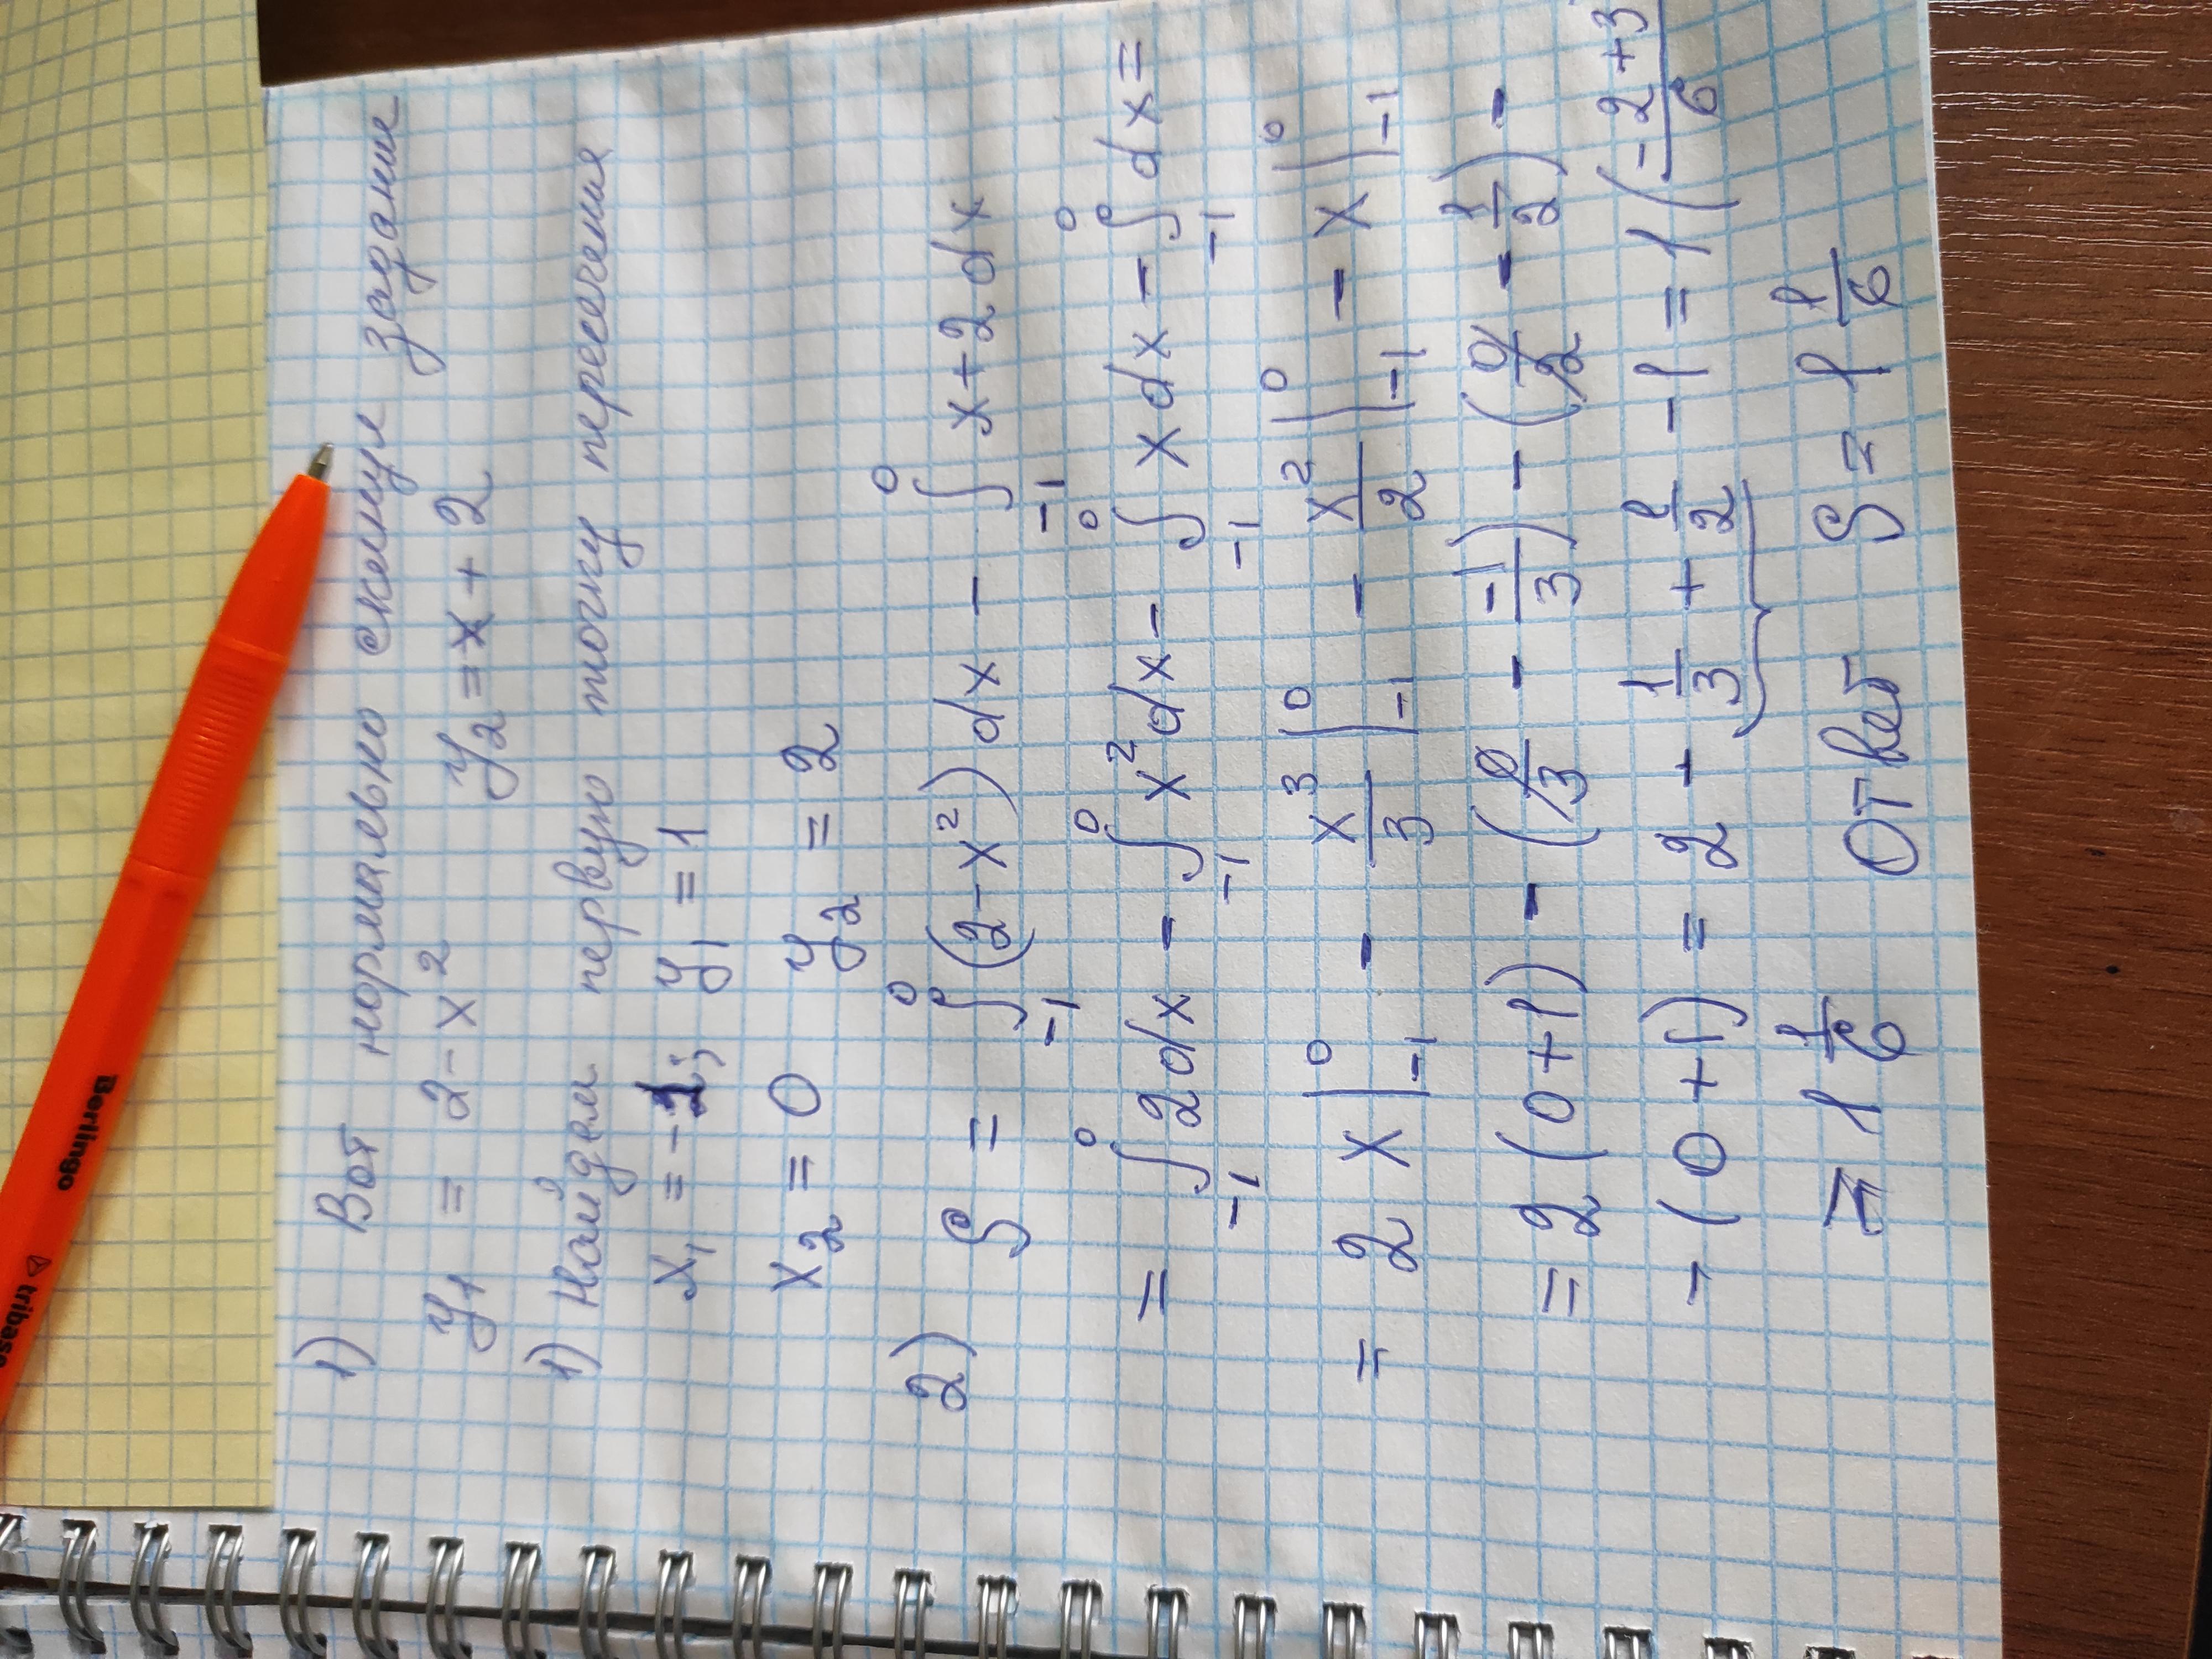 1) Вот нормально скину задание
y₁ = 2 - x² y₂ = x + 2
1) Найдем первую точку пересечения
x₁ = -1; y₁ = 1
x₂ = 0 y₂ = 2
2) S = ∫₋₁⁰ (2 - x²) dx - ∫₋₁⁰ x + 2 dx
= ∫₋₁⁰ 2dx - ∫₋₁⁰ x² dx - ∫₋₁⁰ x dx - ∫₋₁⁰ dx =
= 2x |₋₁⁰ - x³/3 |₋₁⁰ - x²/2 |₋₁⁰ - x |₋₁⁰
= 2 (0 + 1) - (0/3 - -1/3) - (0/2 - 1/2) -
- (0 + 1) = 2 - 1/3 + 1/2 - 1 = 1 (-2+3/6
= 1 1/6 Ответ S = 1 1/6
Berlingo
tribase